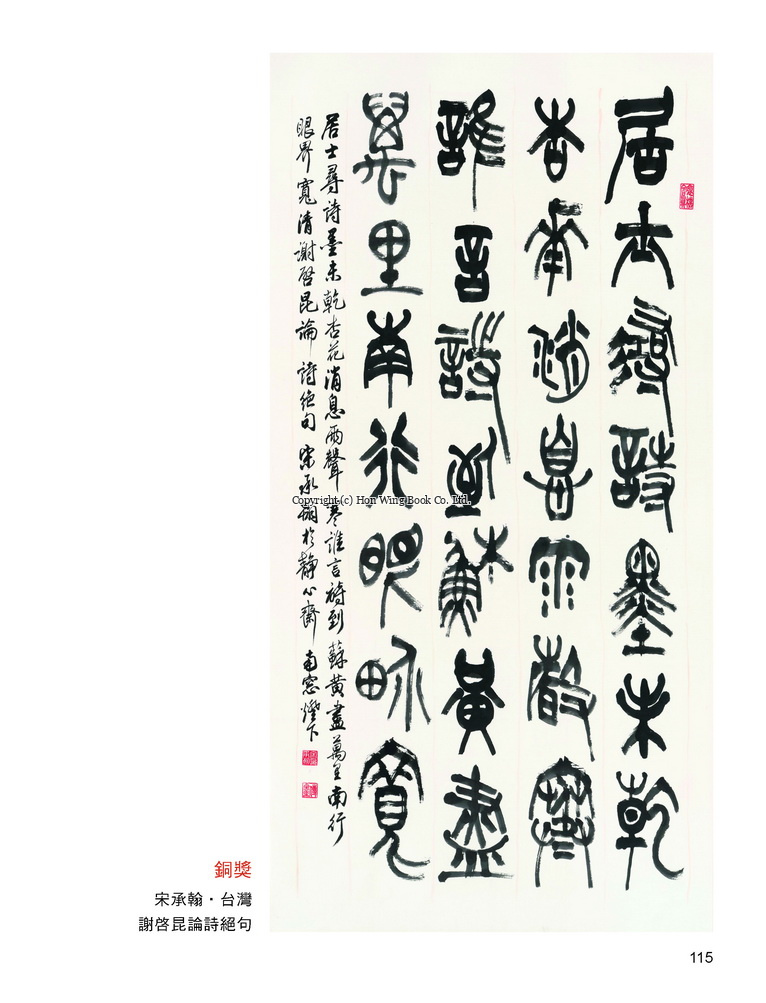 居士尋詩墨未乾
杏花消息雨聲寒
誰言詩到蘇黃盡
萬里南行眼界寬
居士尋詩墨未乾杏花消息雨聲寒誰言詩到蘇黃盡萬里南行
眼界寬清謝啓昆論詩絕句宋承翰於靜心齋南窓燈下
Copyright (c) Hon Wing Book Co. Ltd.
銅獎
宋承翰・台灣
謝啓昆論詩絕句
115